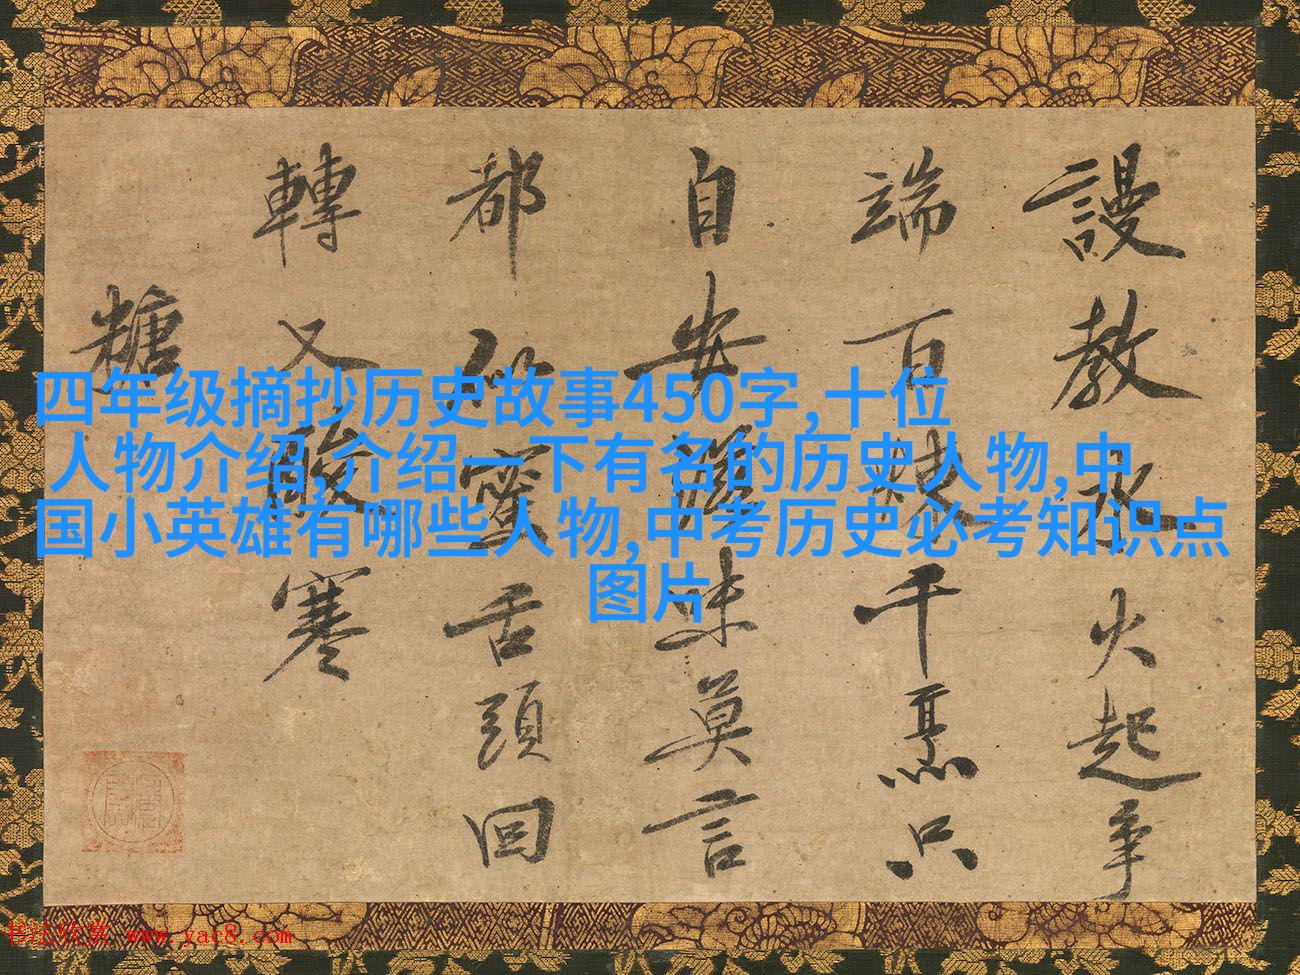 四年级摘抄历史故事450字,十位
人物介绍,介绍一下有名的历史人物,中
国小英雄有哪些人物,中考历史必考知识点
图片
謾教水火起爭
端百煉千熬只
自安滋味莫言
都似蜜舌頭回
轉又酸寒
糖
书法欣赏 www.yac8.com